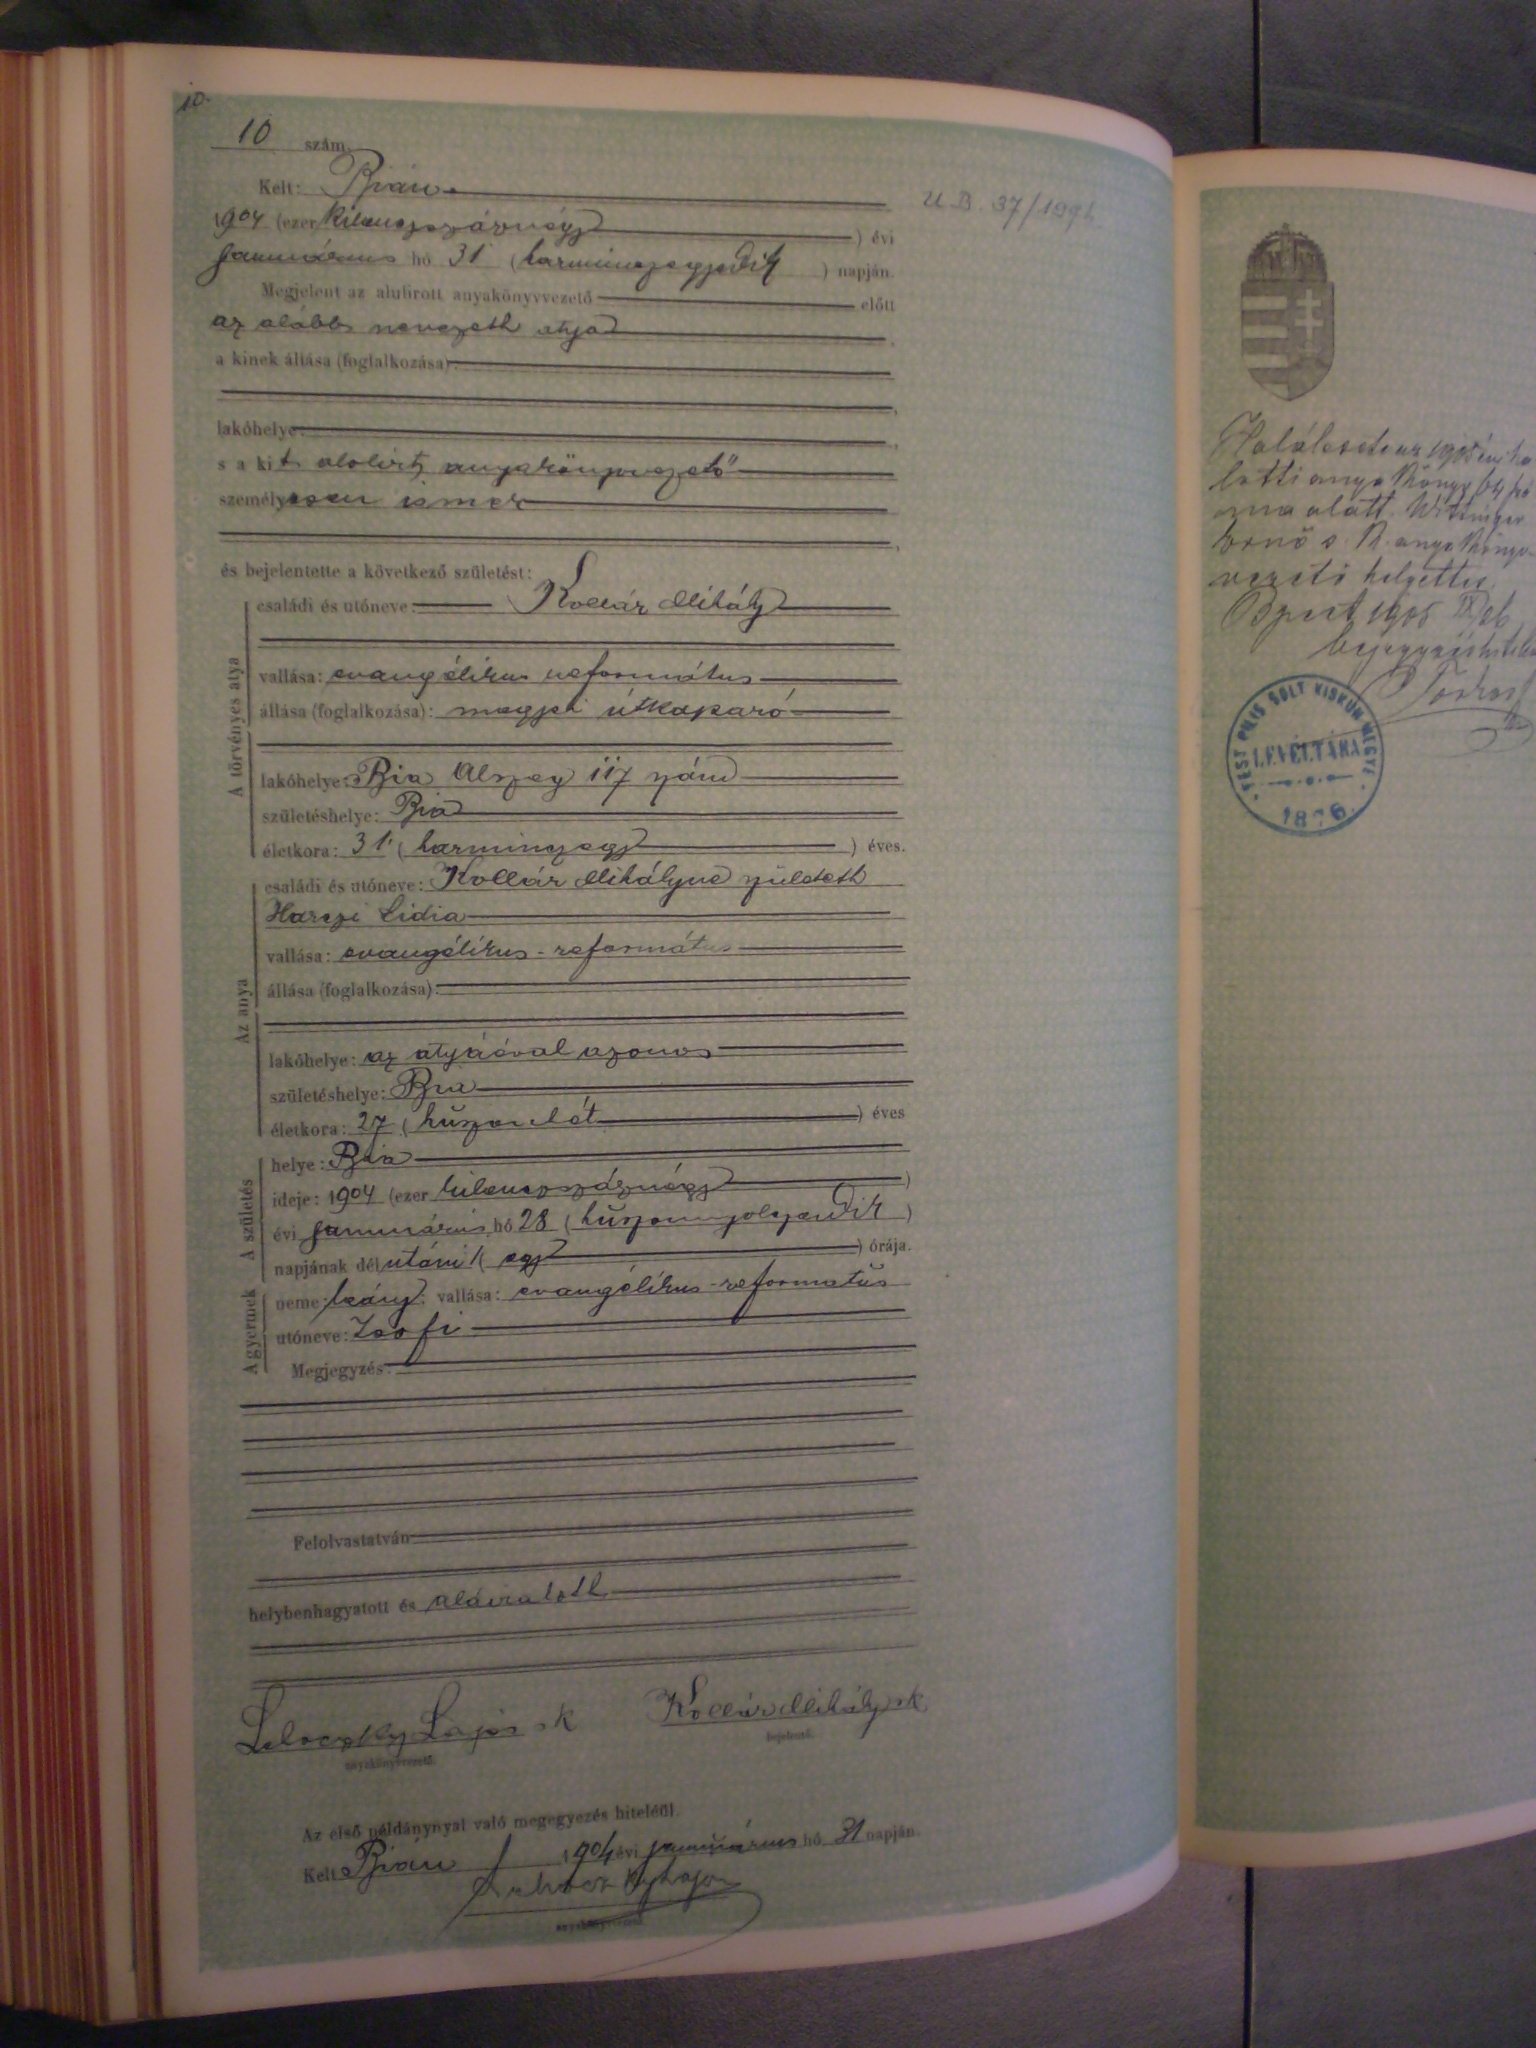 10.
10 szám.
Kelt: Bián
1904 (ezer kilenczszáznégy) évi
januárius hó 31 (harminczegyedik) napján.
Megjelent az alulirott anyakönyvvezető előtt
az alább nevezett atya
a kinek állása (foglalkozása):
lakóhelye
s a kit alolirt anyakönyvvezető
személyesen ismer
és bejelentette a következő születést:
A törvényes atya
családi és utóneve: Kollár Mihály
vallása: evangélikus református
állása (foglalkozása): megyei útkaparó
lakóhelye: Bia Alszeg 117 szám
születéshelye: Bia
életkora: 31 (harminczegy) éves.
Az anya
családi és utóneve: Kollár Mihályné született
Harczi Lidia
vallása: evangélikus-református
állása (foglalkozása):
lakóhelye: az atyáéval azonos
születéshelye: Bia
életkora: 27 (huszonhét) éves
A születés
helye: Bia
ideje: 1904 (ezer kilenczszáznégy)
évi januárius hó 28 (huszonnyolczadik)
napjának délutáni 1 (egy) órája.
A gyermek
neme: leány; vallása: evangélikus-református
utóneve: Zsofi
Megjegyzés:
Felolvastatván
helybenhagyatott és aláiratott
Lajos sk
anyakönyvvezető.
Kollár Mihály sk
bejelentő.
Az első példánynyal való megegyezés hiteléül.
Kelt Bián 1904 évi januárius hó 31 napján.
Lajos
anyakönyvvezető
U.B. 37/
Haláleset az 1905 évi ha
lotti anyakönyv 64 szá
ma alatt.
Ernő s. k. anyakönyv
vezető helyettes
Bpest 1905
PEST PILIS SOLT KISKUN MEGYE
LEVÉLTÁRA
1876